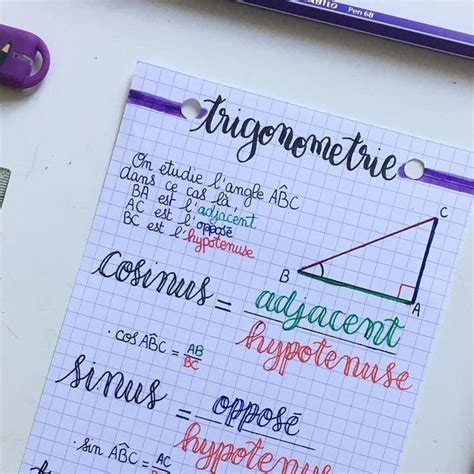 STABILO Pen 68
trigonometrie
On étudie l'angle AB̂C
dans ce cas là,
BA est l'adjacent
AC est l'opposé
BC est l'hypotenuse
C
B
A
cosinus = adjacent
hypotenuse
· cos AB̂C = AB
BC
sinus = opposé
hypotenuse
· sin AB̂C = AC
BC